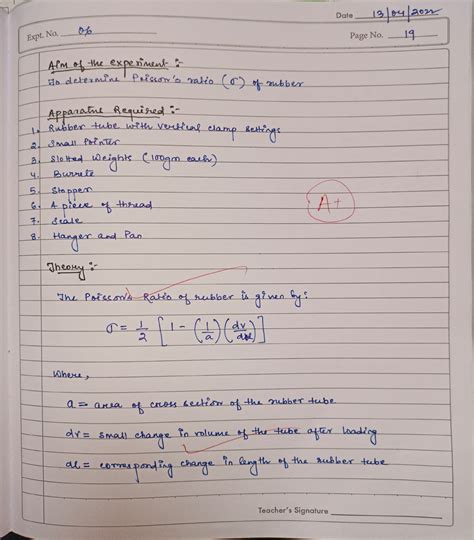 Date 13/04/2022
Expt. No. 06
Page No. 19
Aim of the experiment :-
To determine Poisson's ratio (σ) of rubber
Apparatus Required :-
1. Rubber tube with vertical clamp settings
2. Small Pointer
3. Slotted Weights (100gm each)
4. Burrete
5. Stopper
6. A piece of thread
7. Scale
8. Hanger and Pan
A+
Theory :-
The Poisson's Ratio of rubber is given by:
σ = 1/2 [1 - (1/a) (dv/dl)]
Where,
a = area of cross section of the rubber tube
dv = small change in volume of the tube after loading
dl = corresponding change in length of the rubber tube
Teacher's Signature